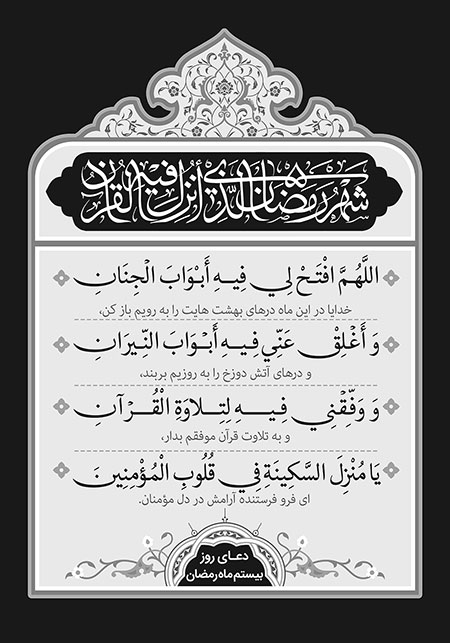 شهر رمضان الذی أنزل فیه القرآن
اللهُمَّ افْتَحْ لِي فِيهِ أَبْوَابَ الْجِنَانِ
خدایا در این ماه درهای بهشت هایت را به رویم باز کن،
وَ أَغْلِقْ عَنِّي فِيهِ أَبْوَابَ النِّيرَانِ
و درهای آتش دوزخ را به روزیم بربند،
وَ وَفِّقْنِي فِيهِ لِتِلَاوَةِ الْقُرْآنِ
و به تلاوت قرآن موفقم بدار،
يَا مُنْزِلَ السَّكِينَةِ فِي قُلُوبِ الْمُؤْمِنِينَ
ای فرو فرستنده آرامش در دل مؤمنان.
دعای روز
بیستم ماه رمضان